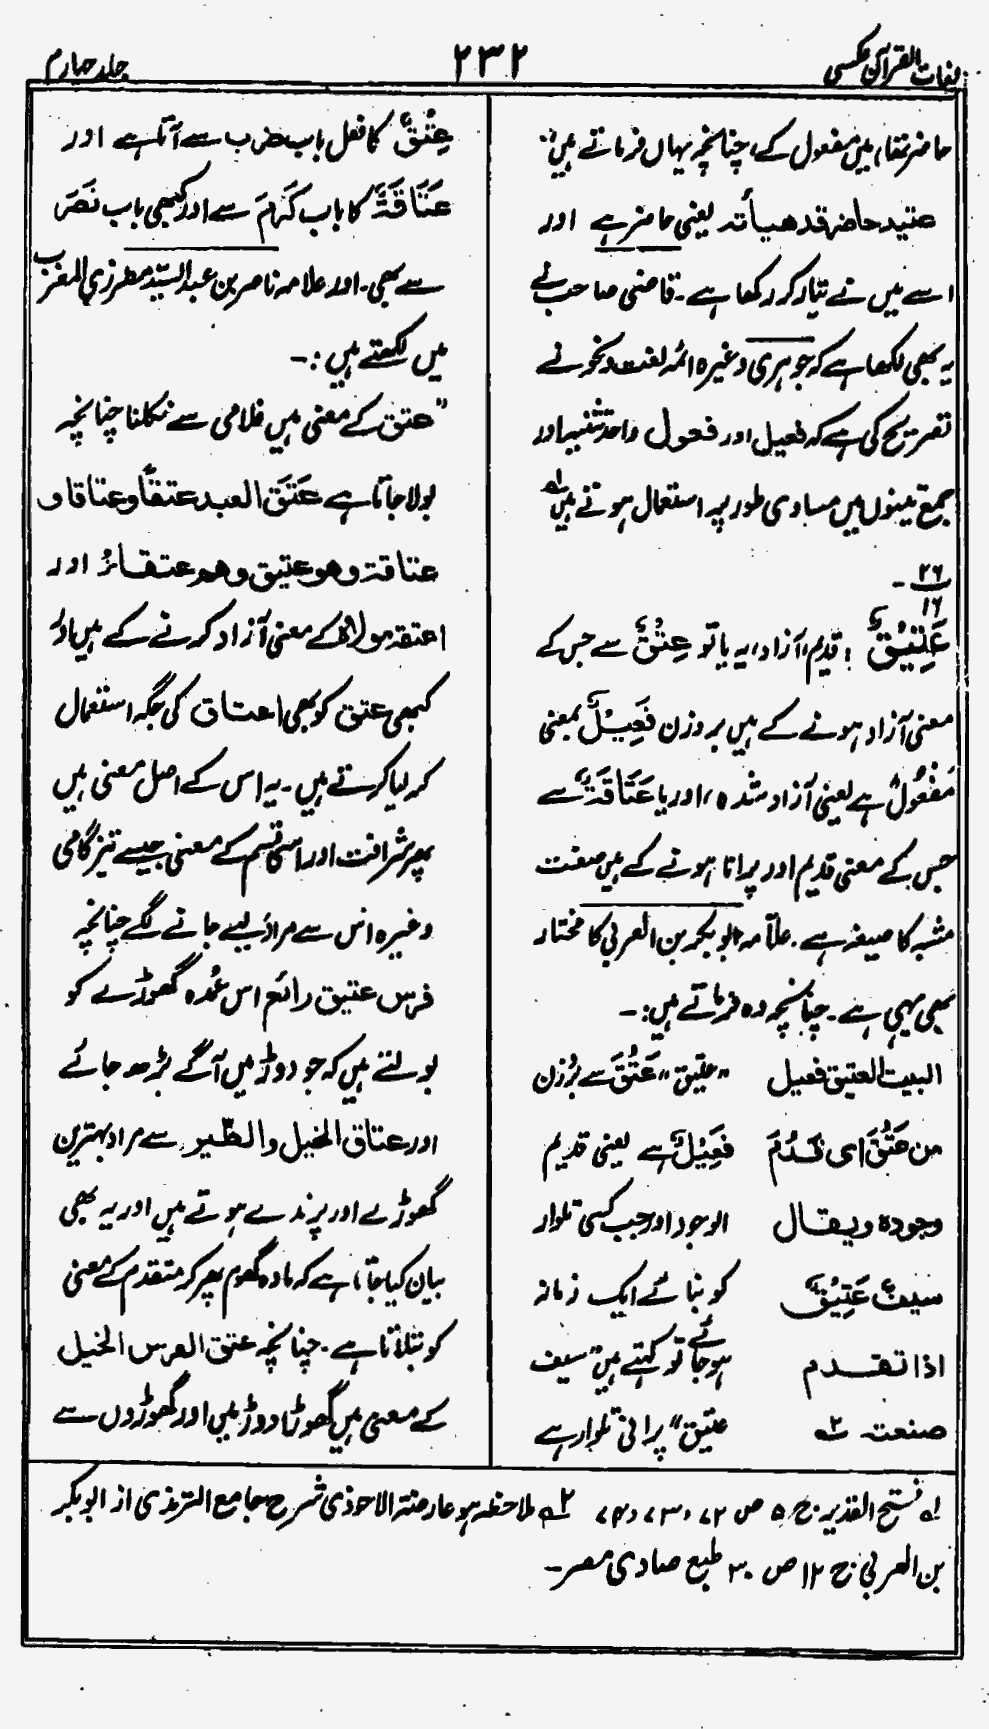 لغات القرآن عکسی
۲۳۲
جلد چہارم
حاضر مقام میں مفعول کے، چنانچہ یہاں فرماتے ہیں:
عتید حاضر قد هیأته یعنی حاضر ہے اور
اسے میں نے تیار کر رکھا ہے۔ قاضی صاحب نے
یہ بھی لکھا ہے کہ جوہری وغیرہ ائمہ لغت و نحو نے
تصریح کی ہے کہ فعیل اور فعول واحد تثنیہ اور
جمع تینوں میں مساوی طور پر استعمال ہوتے ہیں لہ
۲۶
۱۶ ۔
عَتِیْقٌ : قدیم، آزاد، یہ یا تو عِتْقٌ سے جس کے
معنی آزاد ہونے کے ہیں بروزن فَعِیْلٌ بمعنی
مَفْعُولٌ ہے یعنی آزاد شدہ، اور یا عَتَاقَةٌ سے
جس کے معنی قدیم اور پرانا ہونے کے ہیں صفت
مشبہ کا صیغہ ہے۔ علامہ ابوبکر بن العربی کا مختار
بھی یہی ہے۔ چنانچہ وہ فرماتے ہیں:۔
البیت العتیق فعیل
من عَتُقَ ای قَدُمَ
وجوده ویقال
سیفٌ عَتِیْقٌ
اذا تقدم
صنعته ۲ہ
"عتیق" عَتُقَ سے بروزن
فَعِیْلٌ ہے یعنی قدیم
الوجود اور جب کسی تلوار
کو بنائے ایک زمانہ
ہو جائے تو کہتے ہیں "سیف
عتیق" پرانی تلوار ہے
عِتْقٌ کا فعل باب ضرب سے آتا ہے اور
عَتَاقَةٌ کا باب کَرُمَ سے اور کبھی باب نَصَرَ
سے بھی۔ اور علامہ ناصر بن عبد السید مطرزی المغرب
میں لکھتے ہیں:۔
"عتق کے معنی ہیں غلامی سے نکلنا چنانچہ
بولا جاتا ہے عَتَقَ العبد عتقاً وعتاقا و
عتاقة وهو عتیق وهم عتقاءُ اور
اعتقہ مولاہ کے معنی آزاد کرنے کے ہیں اور
کبھی عتق کو بھی اعتاق کی جگہ استعمال
کر لیا کرتے ہیں۔ یہ اس کے اصل معنی ہیں
پھر شرافت اور اسی قسم کے معنی جیسے تیز گامی
وغیرہ اس سے مراد لیے جانے لگے چنانچہ
فرس عتیق رائع اس عمدہ گھوڑے کو
بولتے ہیں کہ جو دوڑ میں آگے بڑھ جائے
اور عتاق الخیل والطیر سے مراد بہترین
گھوڑے اور پرندے ہوتے ہیں اور یہ بھی
بیان کیا جاتا ہے کہ مادہ گھوم پھر کر متقدم کے معنی
کو بتلاتا ہے۔ چنانچہ عتق الفرس الخیل
کے معنی ہیں گھوڑا دوڑ میں اور گھوڑوں سے
لہ فتح القدیر ج ۵ ص ۷۲، ۷۳، ۷۴ ۲ہ ملاحظہ ہو عارضۃ الاحوذی شرح جامع الترمذی از ابوبکر
بن العربی ج ۱۲ ص ۳۰ طبع صادی مصر۔